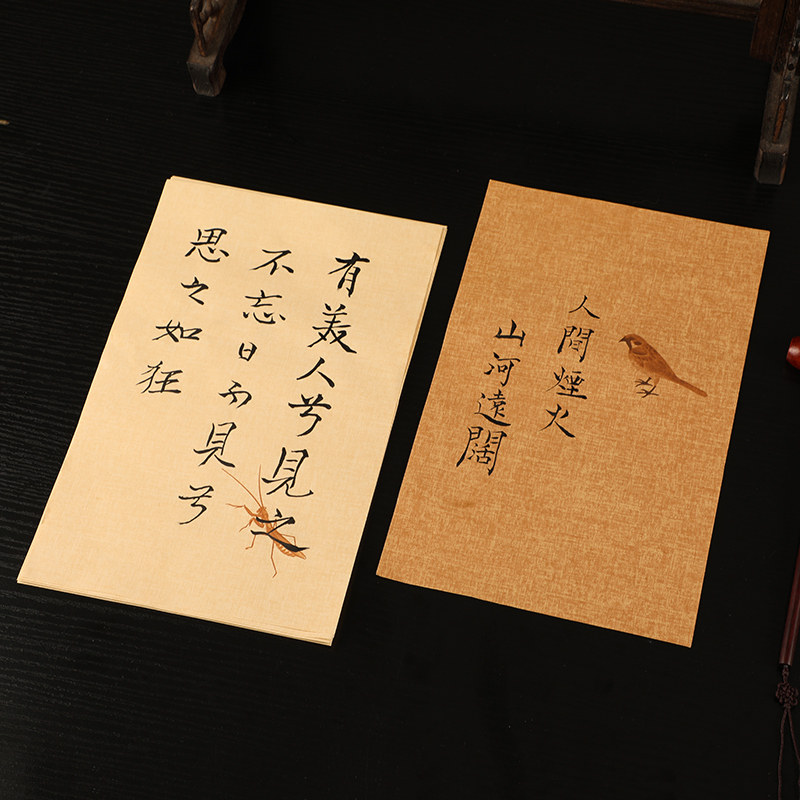 有美人兮見之
不忘日不見兮
思之如狂
人間煙火
山河遠闊